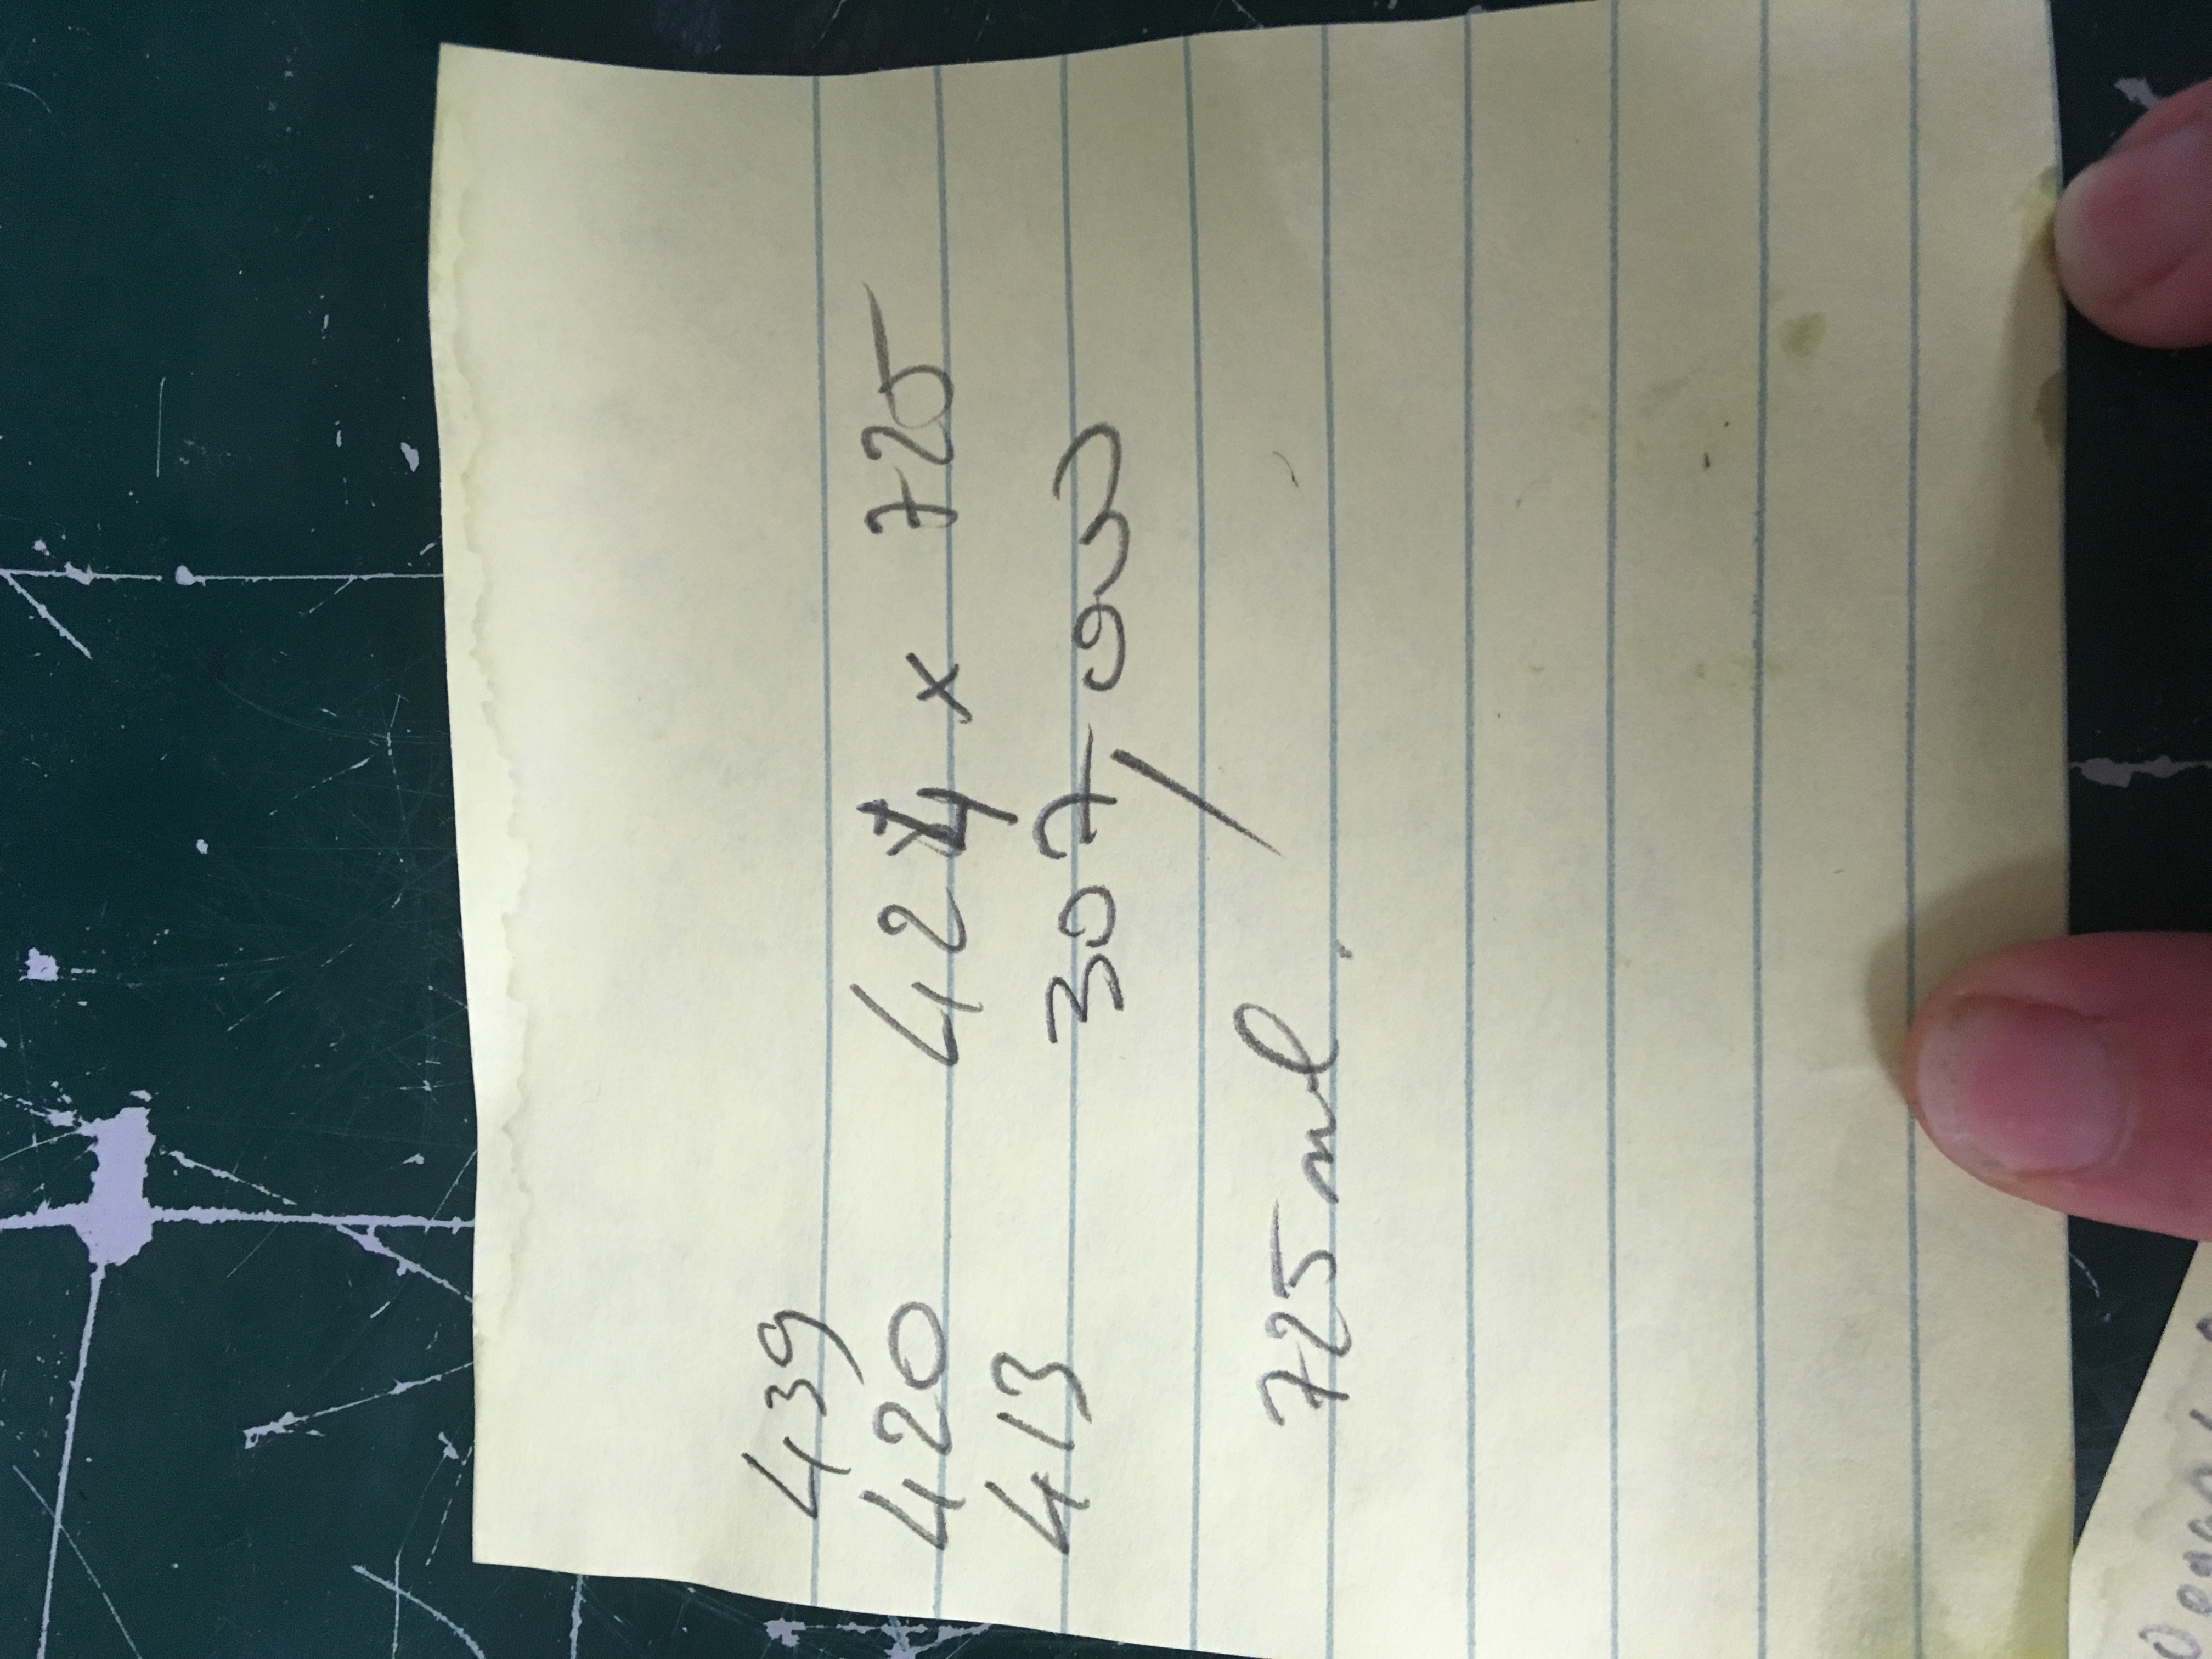 439
420
413
424 x 725
307,000
725 ml.